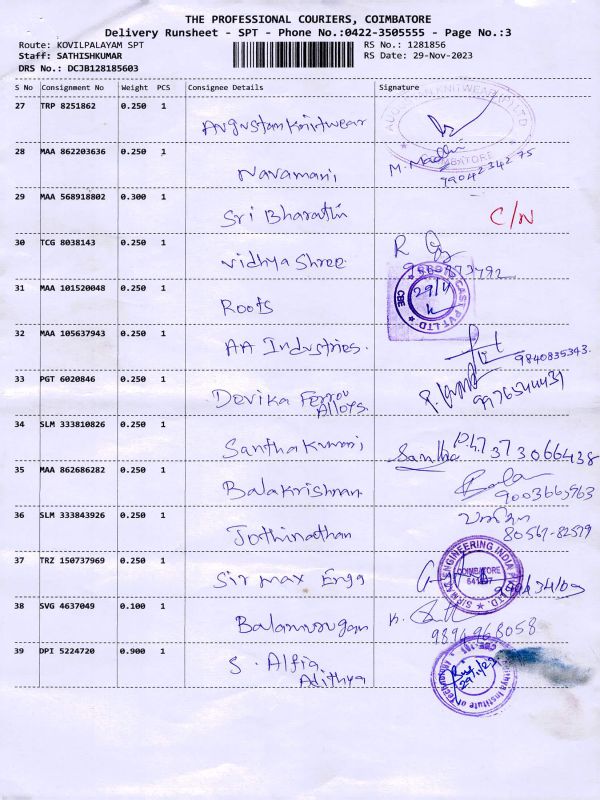 THE PROFESSIONAL COURIERS, COIMBATORE
Delivery Runsheet - SPT - Phone No.:0422-3505555 - Page No.:3
Route: KOVILPALAYAM SPT
RS No.: 1281856
Staff: SATHISHKUMAR
RS Date: 29-Nov-2023
DRS No.: DCJB128185603
S No Consignment No Weight PCS Consignee Details Signature
27 TRP 8251862 0.250 1
Augustan Knitwear
28 MAA 862203636 0.250 1
Navamani
M. Madhu
9904234275
COIMBATORE
29 MAA 568918802 0.300 1
Sri Bharathi
C/N
30 TCG 8038143 0.250 1
Vidhya Shree
31 MAA 101520048 0.250 1
Roots
ROOTS CAST PVT LTD
CBE
29/11
32 MAA 105637943 0.250 1
AA Industries.
9840835343.
33 PGT 6020846 0.250 1
Devika Ferrou
Alloys.
9976544431
34 SLM 333810826 0.250 1
Santha Kumari
Santha
7373066438
35 MAA 862686282 0.250 1
Balakrishnan
Bala
9003665963
36 SLM 333843926 0.250 1
Jothinathan
80567-82579
37 TRZ 150737969 0.250 1
Sir Max Engg
ENGINEERING INDIA
COIMBATORE
38 SVG 4637049 0.100 1
Balamurugan
9894968058
39 DPI 5224720 0.900 1
S. Alfia
Adithya
29/11/23
Adithya Institute of Technology